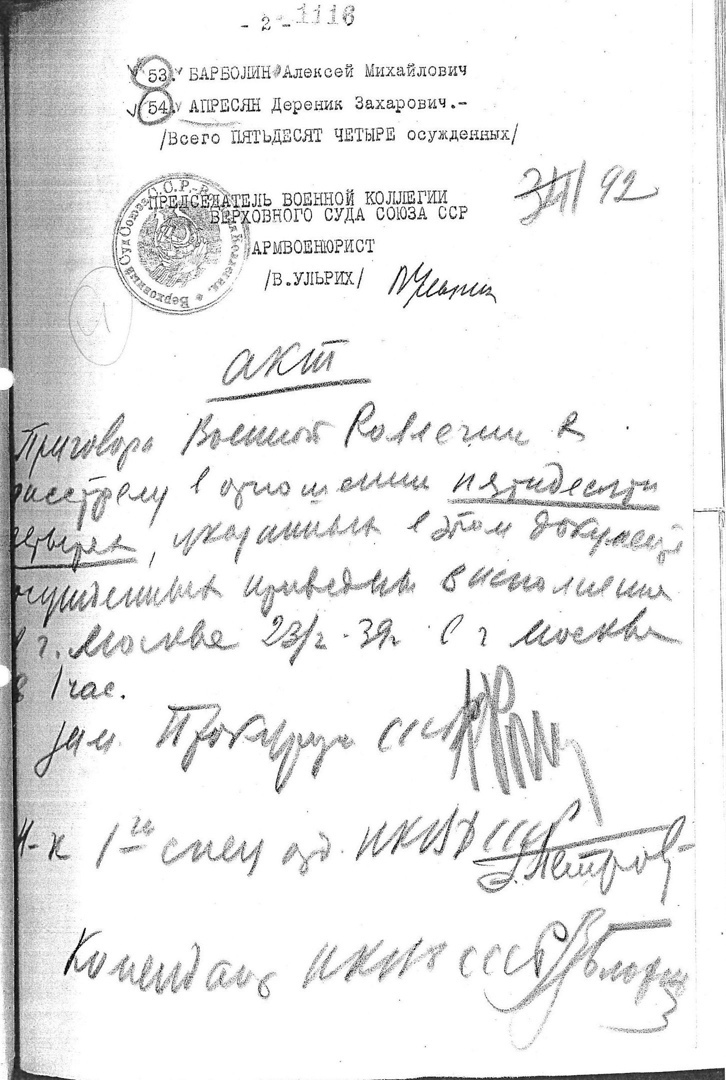 - 2 - 1116
53. БАРБОЛИН Алексей Михайлович
54. АПРЕСЯН Дереник Захарович.-
/Всего ПЯТЬДЕСЯТ ЧЕТЫРЕ осужденных/
92
ПРЕДСЕДАТЕЛЬ ВОЕННОЙ КОЛЛЕГИИ
ВЕРХОВНОГО СУДА СОЮЗА ССР
АРМВОЕНЮРИСТ
/В.УЛЬРИХ/ ВУльрих
Верховный Суд Союза С.С.Р.
акт
Приговора Военной Коллегии к
расстрелу в отношении пятидесяти
четырех, указанных в этом документе
осужденных приведены в исполнение
в г. Москве 23/2-39г в г Москве
в 1 час.
Зам. Прокурора СССР
Н-к 1го спец отд. НКВД СССР Петров
Комендант НКВД СССР Блохин